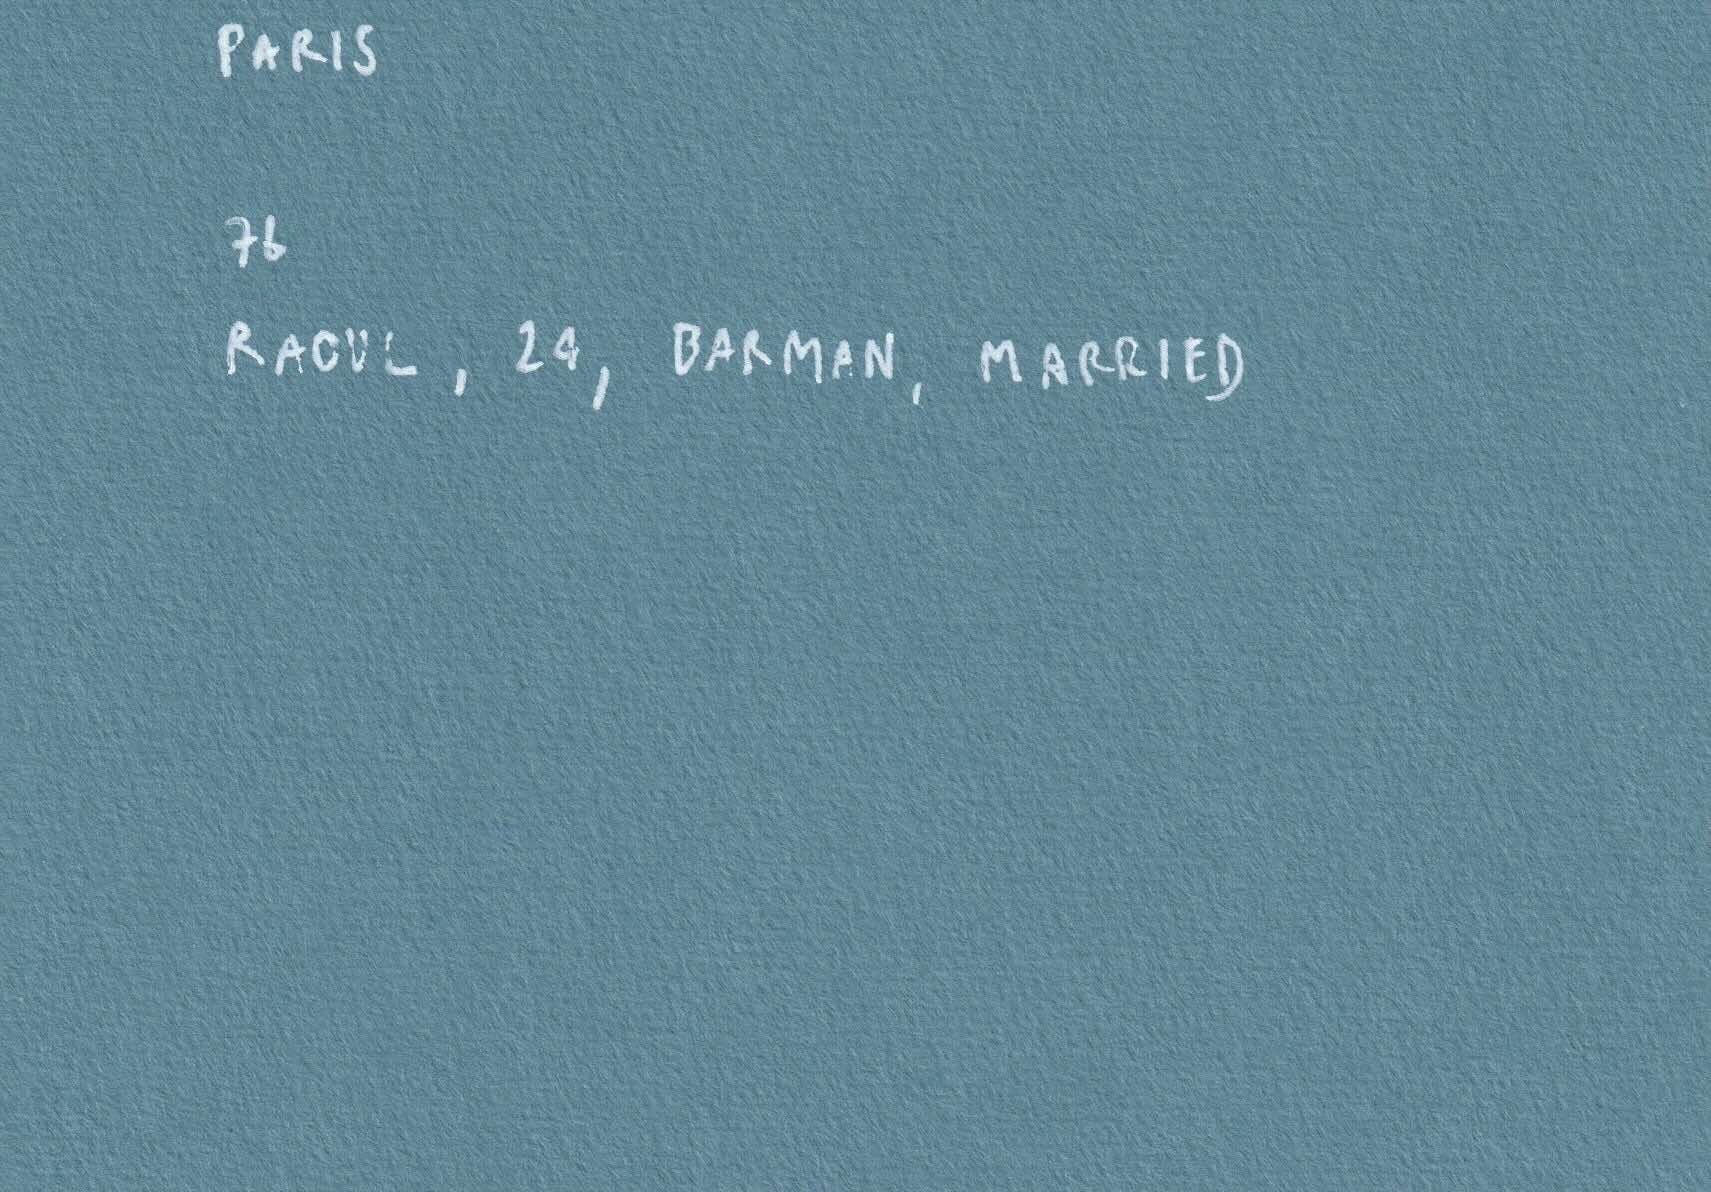 PARIS
76
RAOUL, 24, BARMAN, MARRIED